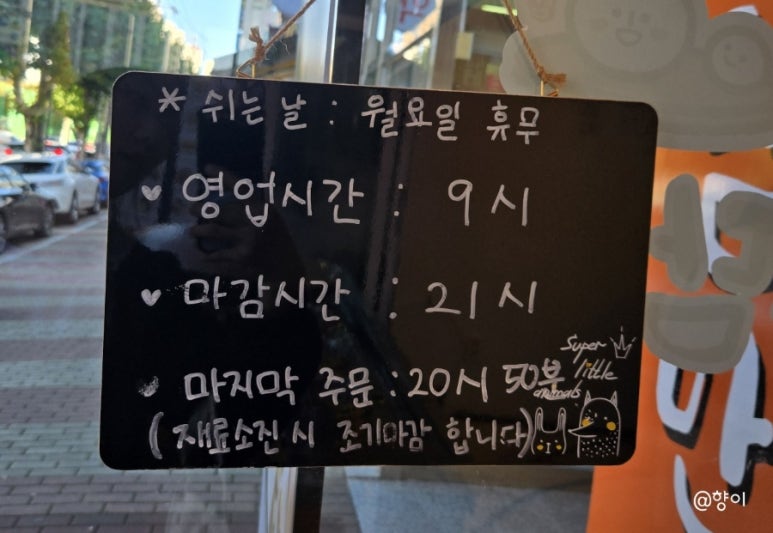 * 쉬는날 : 월요일 휴무
♥ 영업시간 : 9시
♥ 마감시간 : 21시
마지막 주문 : 20시 50분
(재료소진 시 조기마감 합니다)
Super
little
animals
@향이